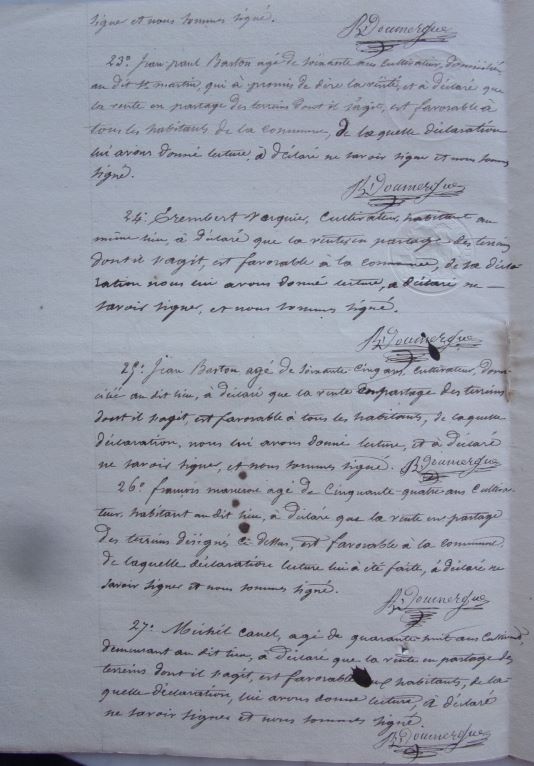 signer et nous sommes signé.
R. Doumergue
23º Jean paul Baston agé de soixante ans cultivateur, domicilié
au dit St. martin, qui à promis de dire la vérité, et à déclaré que
la vente en partage des terrains dont il s'agit, est favorable à
tous les habitants de la commune, de laquelle déclaration
lui avons donné lecture, à déclaré ne savoir signer et nous sommes
signé.
R. Doumergue
24º. Erembert cultivateur, habitant au
même lieu, à déclaré que la vente en partage des terrains
dont il s'agit, est favorable à la commune, de sa décla
ration nous lui avons donné lecture, a déclaré ne —
savoir signer, et nous sommes signé.
R. Doumergue
25º. Jean Baston agé de soixante cinq ans, cultivateur, domi-
cilié au dit lieu, à déclaré que la vente en partage des terreins
dont il s'agit, est favorable à tous les habitants, de laquelle
déclaration, nous lui avons donné lecture, et à déclaré
ne savoir signer, et nous sommes signé. R. Doumergue
26º. francois agé de Cinquante quatre ans Cultiva-
teur, habitant au dit lieu, à déclaré que la vente en partage
des terreins désignés ci dessus, est favorable à la commune
de laquelle déclaration lecture lui à été faite, à déclaré ne
savoir signer et nous sommes signé.
R. Doumergue
27º. Michel Canet, agé de quarante huit ans Cultivat,
demeurant au dit lieu, à déclaré que la vente en partage des
terreins dont il s'agit, est favorable habitants, de la-
quelle déclaration, lui avons donné lecture, à déclaré
ne savoir signer et nous sommes signé.
R. Doumergue